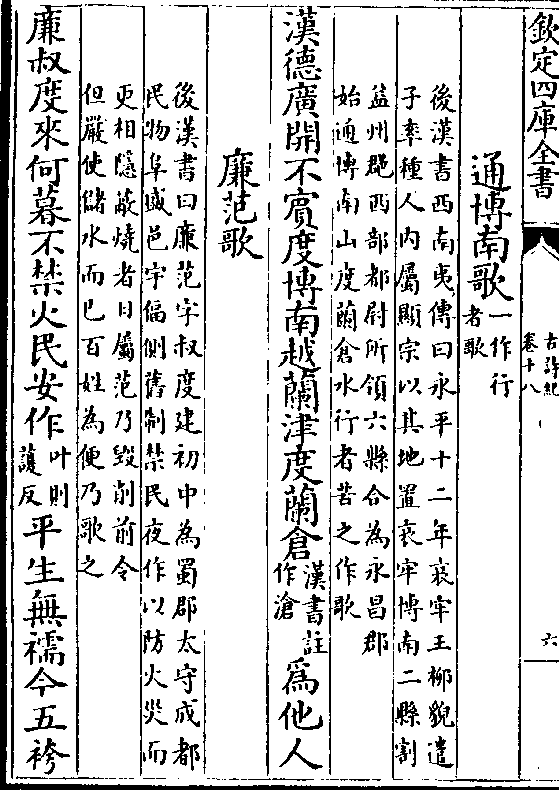 欽定四庫全書
古詩紀
卷十八
六
通博南歌一作行者歌
後漢書西南夷傳曰永平十二年哀牢王柳貌遣
子率種人内屬顯宗以其地置哀牢博南二縣割
益州郡西部都尉所領六縣合為永昌郡
始通博南山度蘭倉水行者苦之作歌
漢德廣開不賓度博南越蘭津度蘭倉漢書註作滄為他人
廉范歌
後漢書曰廉范字叔度建初中為蜀郡太守成都
民物阜盛邑宇偪側舊制禁民夜作以防火災而
更相隱蔽燒者日屬范乃毀削前令
但嚴使儲水而已百姓為便乃歌之
廉叔度來何暮不禁火民安作叶則護反平生無襦今五袴